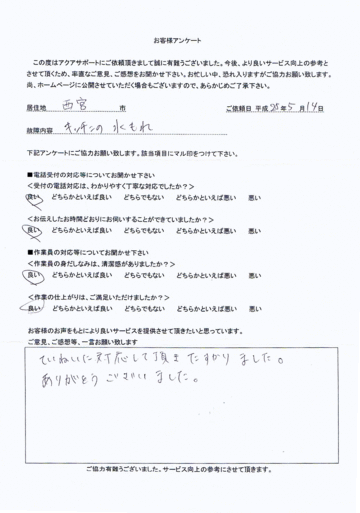 お客様アンケート
この度はアクアサポートにご依頼頂きまして誠に有難うございました。今後、より良いサービス向上の参考と
させて頂くため、率直なご意見、ご感想をお聞かせ下さい。お忙しい中、恐れ入りますがご協力お願い致します。
尚、ホームページに公開させていただく場合もございますので、あらかじめご了承下さい。
居住地 西宮 市 ご依頼日 平成 28年 5月 14日
故障内容 キッチンの水もれ
下記アンケートにご協力お願い致します。該当項目にマル印をつけて下さい。
■電話受付の対応等についてお聞かせ下さい
<受付の電話対応は、わかりやすく丁寧な対応でしたか?>
良い どちらかといえば良い どちらでもない どちらかといえば悪い 悪い
<お伝えしたお時間どおりにお伺いすることができていましたか?>
良い どちらかといえば良い どちらでもない どちらかといえば悪い 悪い
■作業員の対応等についてお聞かせ下さい
<作業員の身だしなみは、清潔感がありましたか?>
良い どちらかといえば良い どちらでもない どちらかといえば悪い 悪い
<作業の仕上がりは、ご満足いただけましたか?>
良い どちらかといえば良い どちらでもない どちらかといえば悪い 悪い
お客様のお声をもとにより良いサービスを提供させて頂きたいと思っています。
ご意見、ご感想等、一言お願い致します
ていねいに対応して頂きたすかりました。
ありがとうございました。
ご協力有難うございました。サービス向上の参考にさせて頂きます。